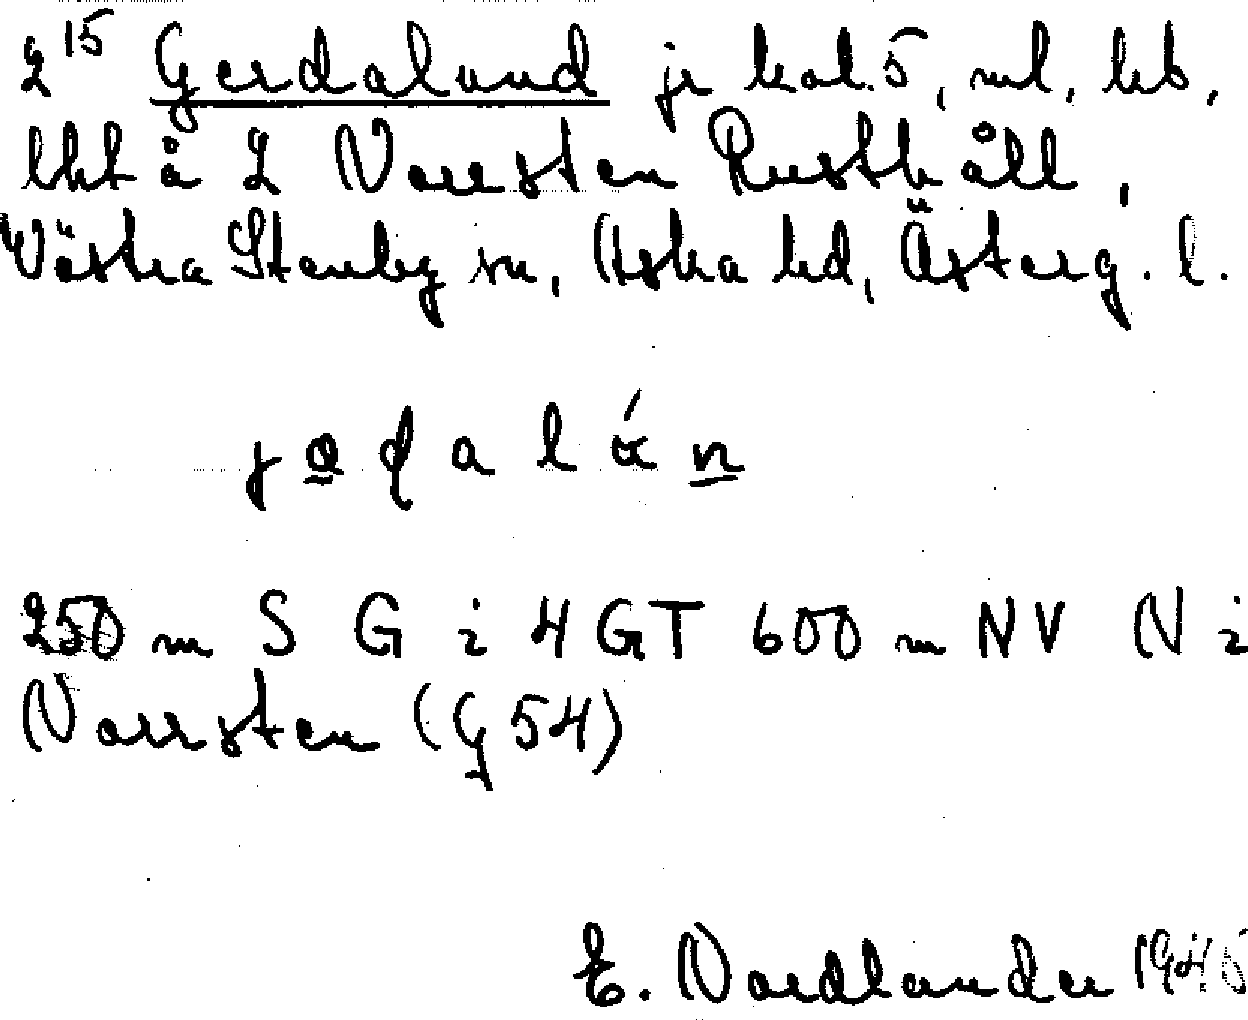 2¹⁵ Gerdalund jr kat. 5, ml, hb,
lht å 2 Norrsten Rusthåll,
Västra Stenby sn, Aska hd, Österg. l.
250 m S G i 4 GT 600 m NV N i
Norrsten (G 54)
E. Nordlander 1945